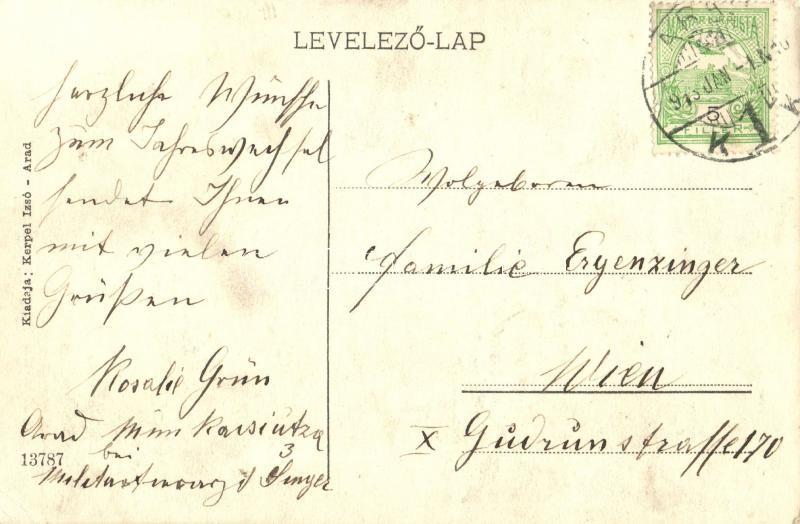 LEVELEZŐ-LAP
herzliche Wünsche
zum Jahreswechsel
sendet Ihnen
mit vielen
Grüßen
Rosalie Grün
Arad
bei 3
Singer
13787
Kiadaja: Kerpel Izsó - Arad
MAGYAR KIR. POSTA
FILLÉR
K 1
Wolgeboren
Familie Ergenzinger
Wien
X Gudrunstrasse 170